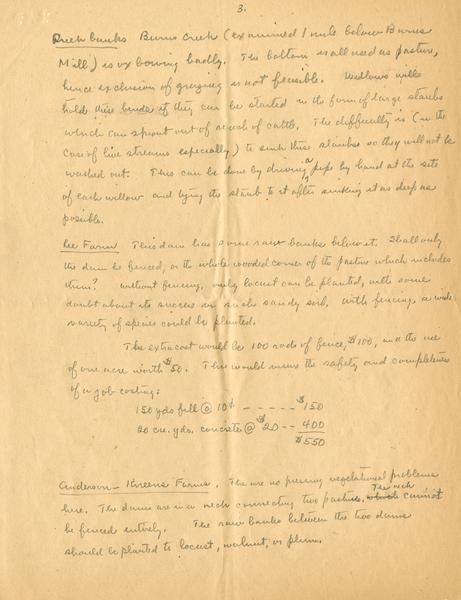 3.
Creek banks Burns Creek (examined 1 mile below Burns
Mill) is ox bowing badly. The bottom is all used as pasture,
hence exclusion of grazing is not feasible. Willows will
hold these bends if they can be started in the form of large staubs
which can sprout out of reach of cattle. The difficulty is (in the
case of live streams especially) to sink these staubs so they will not be
washed out. This can be done by driving a pipe by hand at the site
of each willow and tying the staub to it after sinking it as deep as
possible.
Lee Farm This dam has some raw banks below it. Shall only
the dam be fenced, or the whole wooded corner of the pasture which includes
them? Without fencing, only locust can be planted, with some
doubt about its success in such sandy soil. With fencing, a wide
variety of species could be planted.
The extra cost would be 100 rods of fence, $100, and the use
of one acre worth $50. This would insure the safety and completeness
of a job costing:
150 yds fill @ 10¢ - - - - - - $150
20 cu. yds. concrete @ $20 - - 400
$550
Anderson - Threens Farms. The are no pressing vegetational problems
here. The dams are in a neck connecting two pastures. The neck which cannot
be fenced entirely. The raw banks between the two dams
should be planted to locust, walnut, or plum.